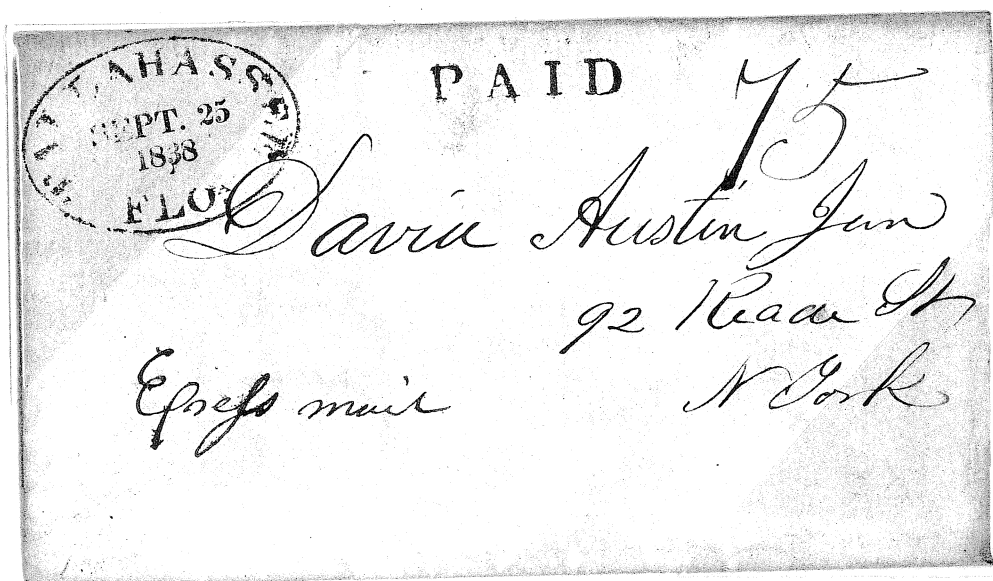 TALLAHASSEE
SEPT. 25
1838
FLO
PAID
75
David Austin Jun
92 Reade St
N York
Express mail